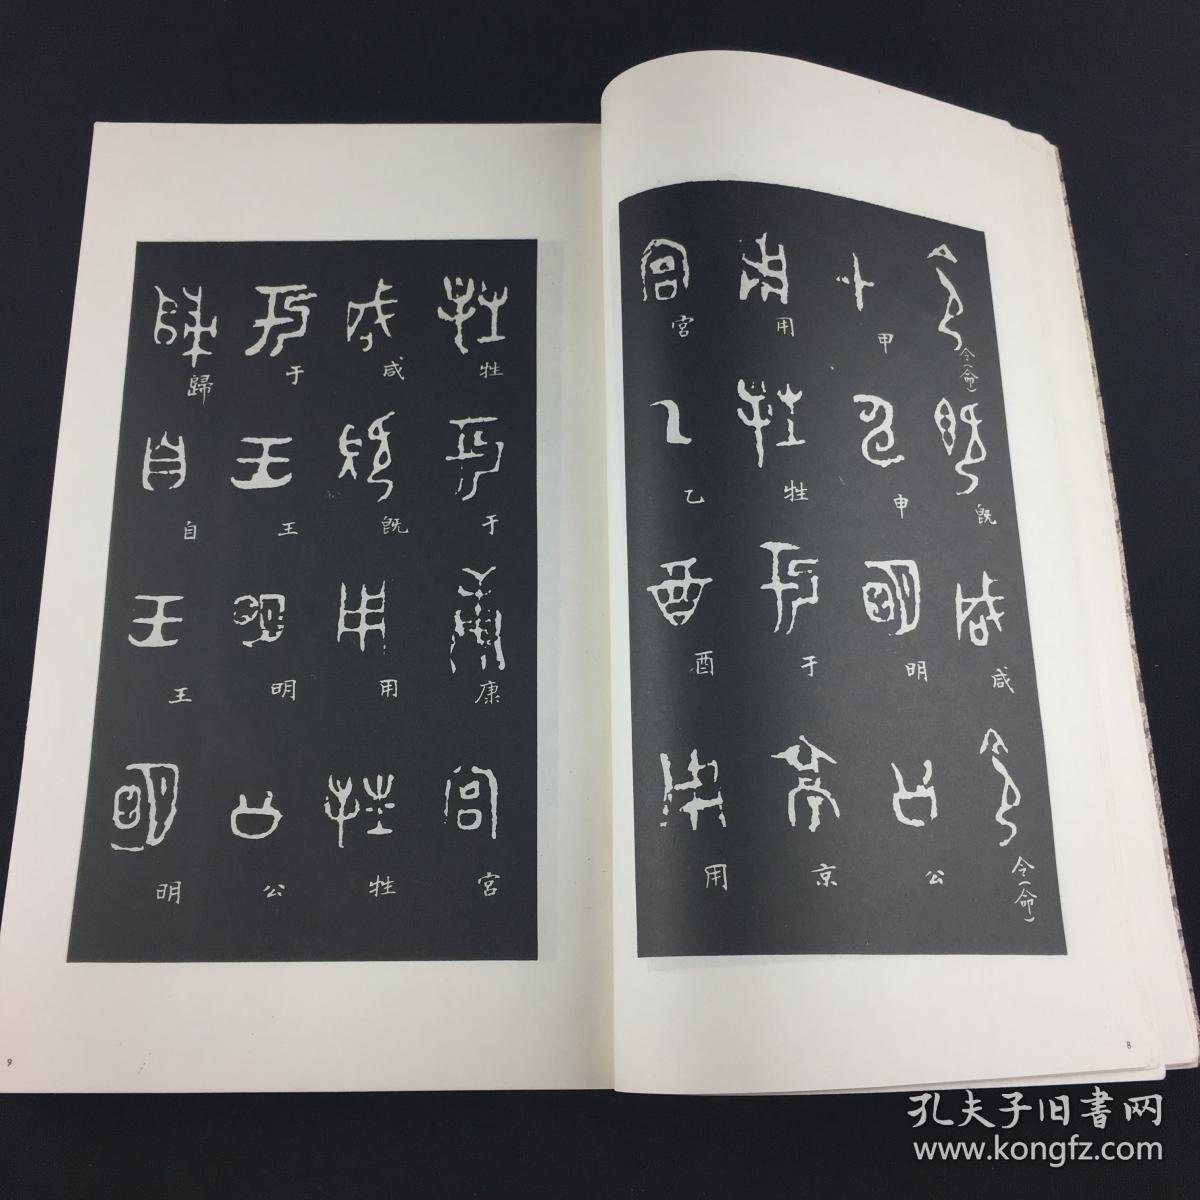 令(命)既咸令(命)
甲申明公
用牲于京
宮乙酉用
牲于康宮
咸既用牲
于王明公
歸自王明
9
8
孔夫子旧書网
www.kongfz.com